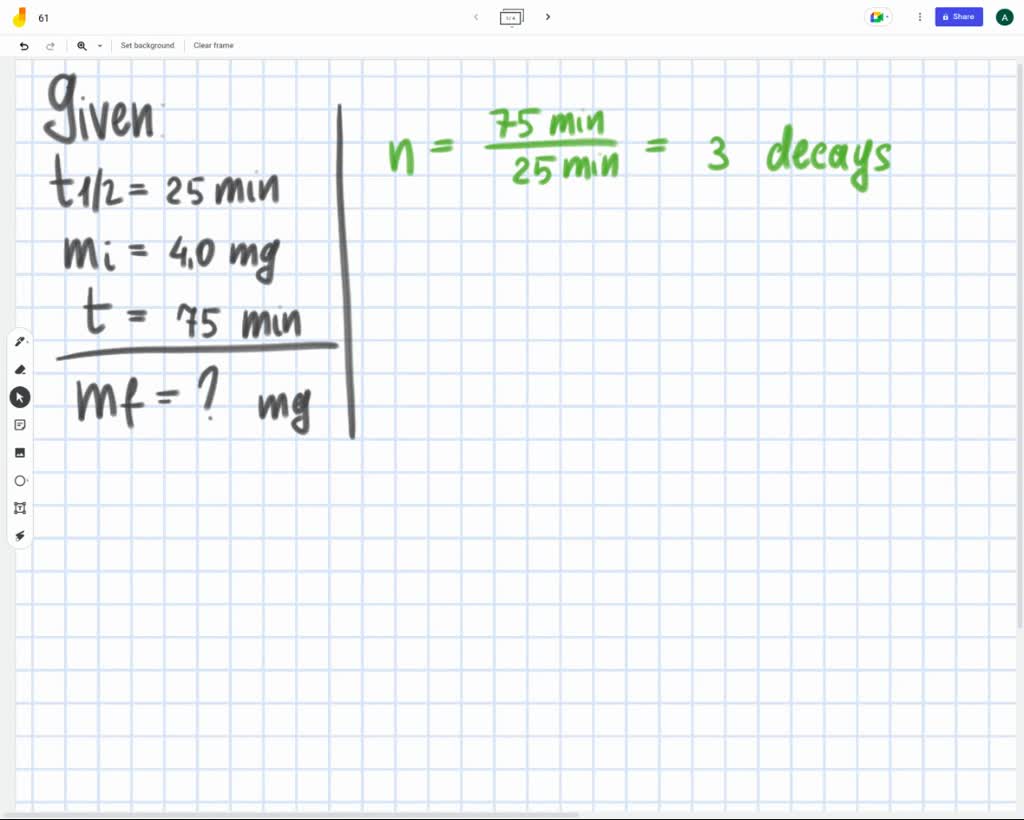 61
1/4
Share
A
Set background
Clear frame
Given:
t1/2 = 25 min
mi = 4.0 mg
t = 75 min
mf = ? mg
n = 75 min / 25 min = 3 decays